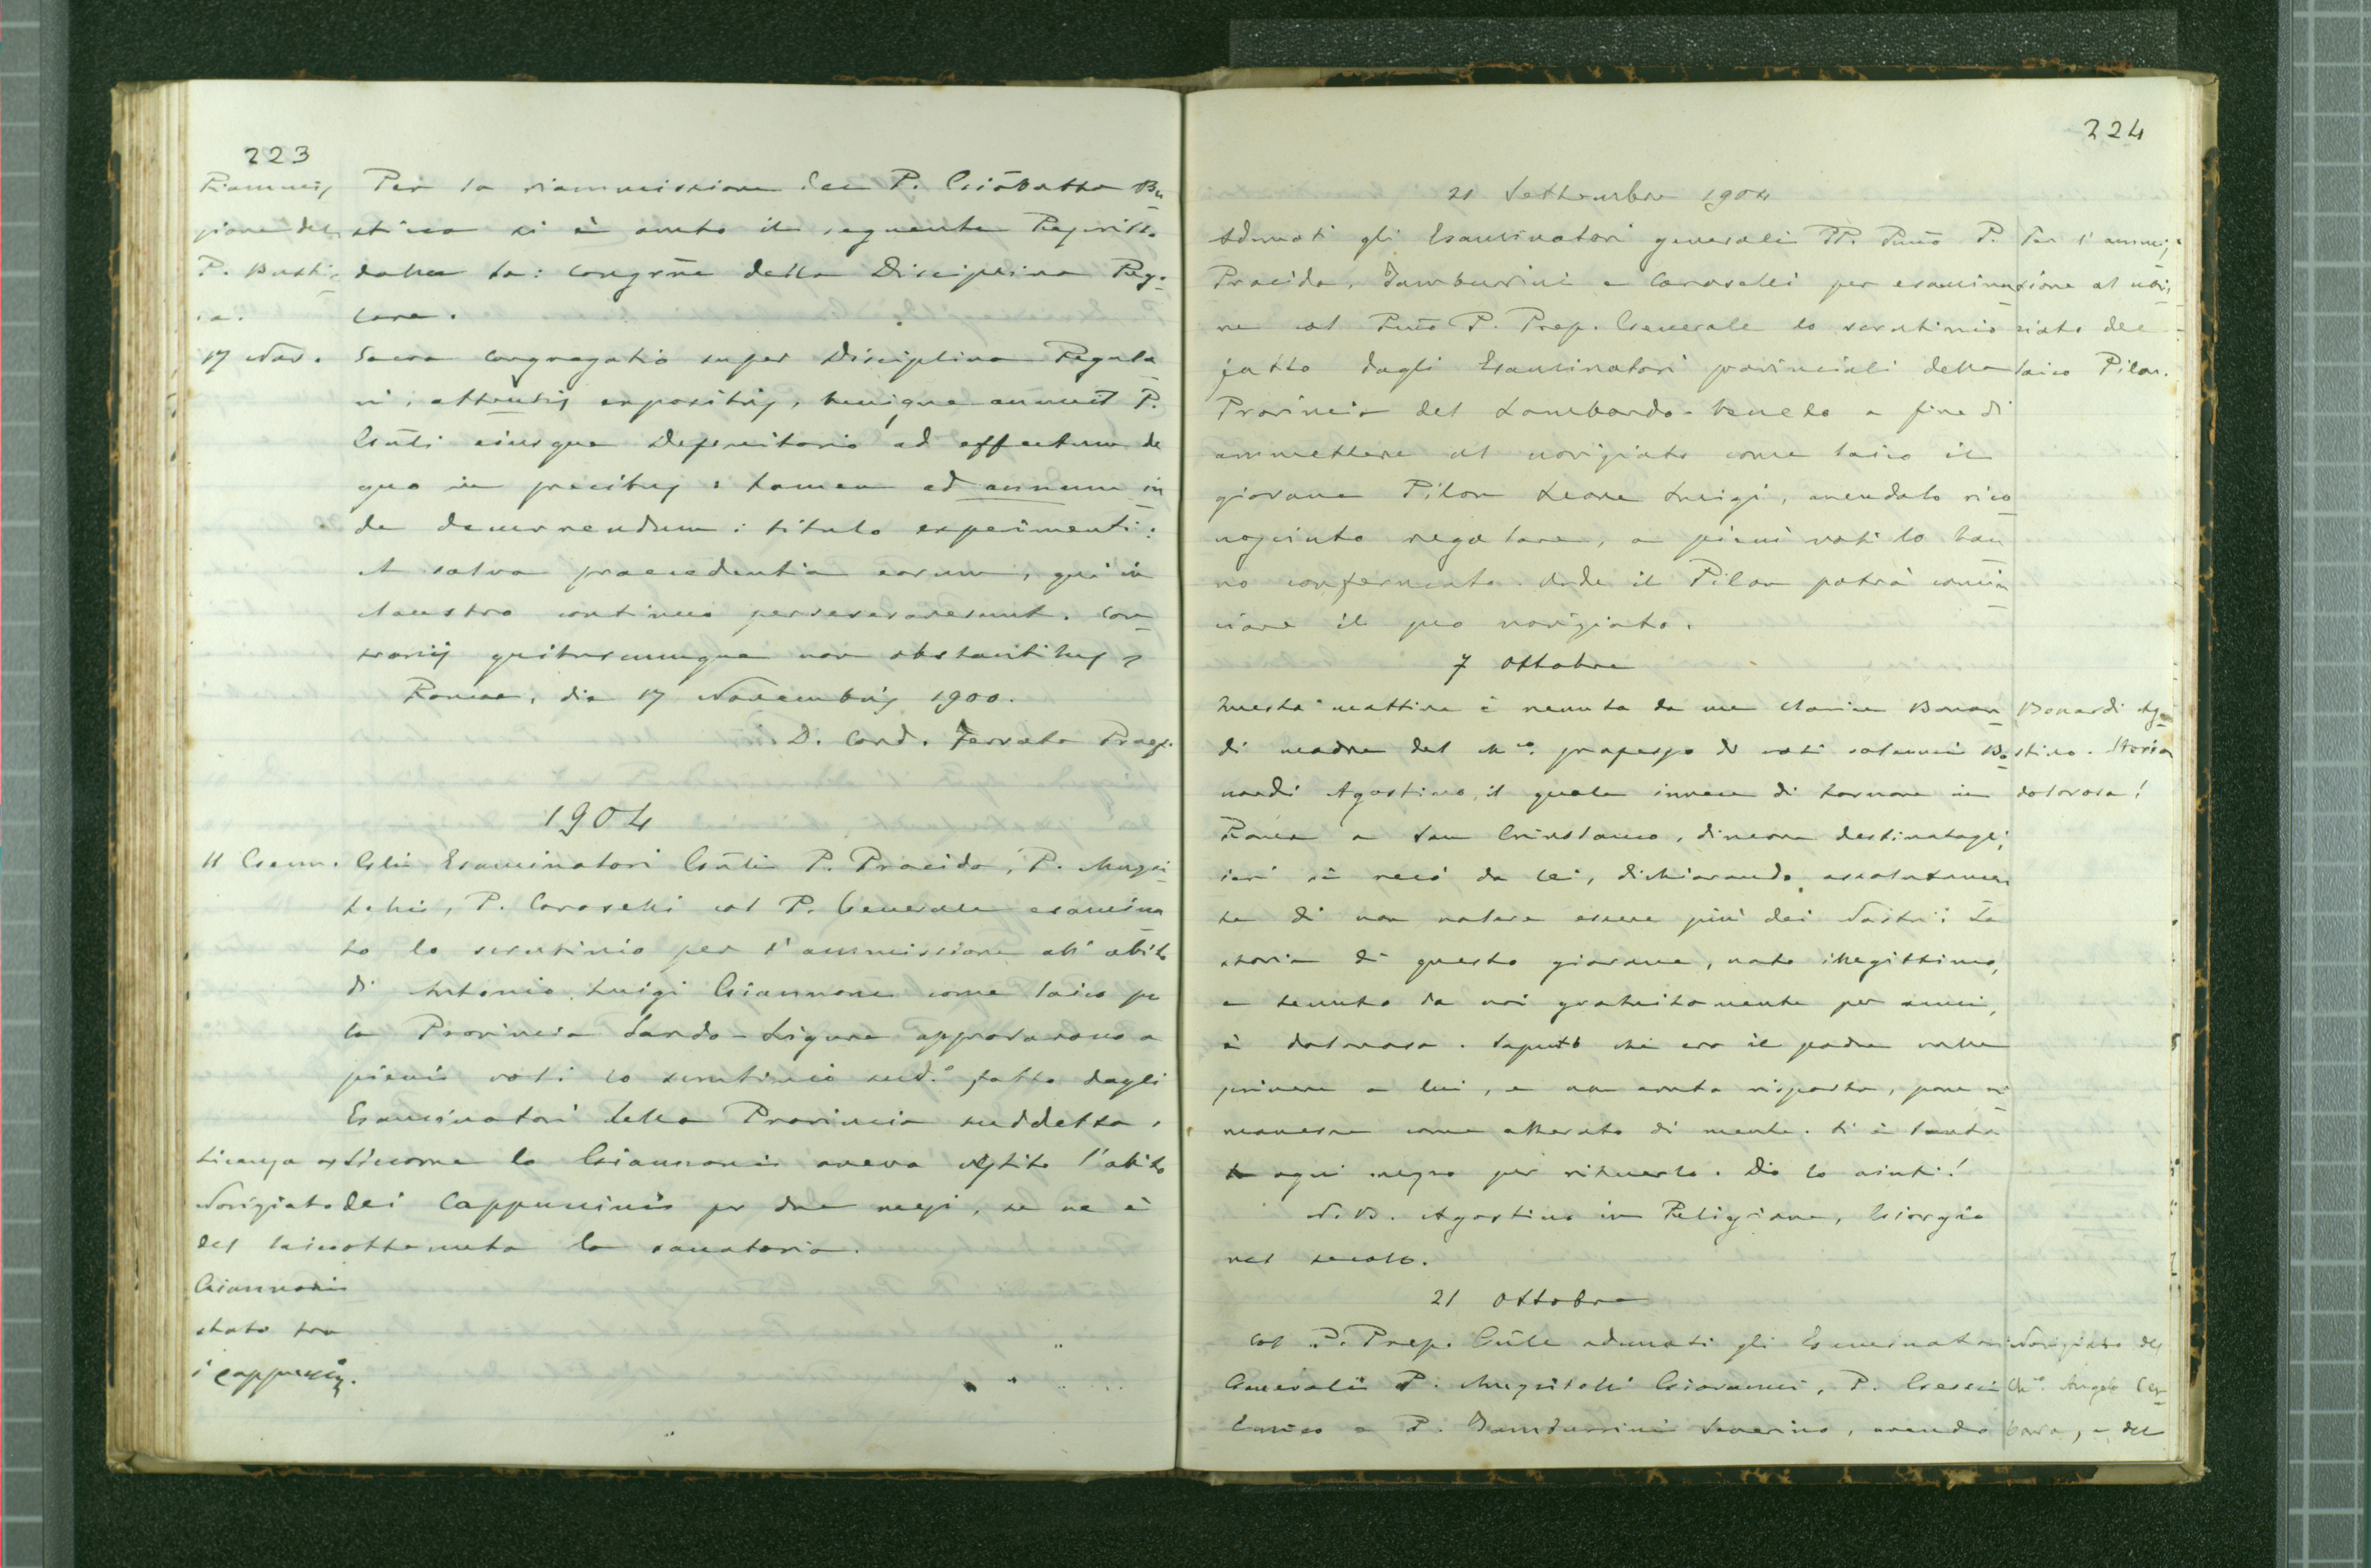 223
Riammis
sione del
P. Busti
ca.
17 Nov.
Per la riammissione del P. Giōbatta Bu
stica si è avuto il seguente Rescritto
dalla Sa: Congrñe della Disciplina Rego
lare.
Sacra Congregatio super Disciplina Regula
ri, attentis expositis, benigne annuit P.
Gñli eiusque Definitorio ad effectum de
quo in precibus: tamen ad annum in
de decurrendum: titulo experimenti:
et salva praecedentia eorum, qui in
claustro continuo perseverarerunt. Con
trariis quibuscumque non obstantibus,
Romae, die 17 Novembris 1900.
D. Card. Ferrata Praef.
1904
11 Genn.
Gli Esaminatori Gñli P. Procida, P. Mugi
telli, P. Caroselli col P. Generale esamina
to lo scrutinio per l'ammissione all'abito
di Antonio Luigi Giannoni come laico per
la Provincia Sardo-Ligure approvarono a
pieni voti lo scrutinio sud.o fatto dagli
Esaminatori della Provincia suddetta.
Siccome lo Giannoni aveva vestito l'abito
dei Cappuccini per due mesi, se ne è
ottenuta la sanatoria.
Licenza al
Novigiato
del laico
Giannoni
stato tra
i Cappuccin.
224
21 Settembre 1904
Adunati gli Esaminatori generali PP. Pmō P.
Procida, Tamburrini e Caroselli per esamina
re col Pmō P. Prep. Generale lo scrutinio
fatto dagli Esaminatori provinciali della
Provincia del Lombardo-Veneto a fine di
ammettere al novigiato come laico il
giovane Pilon Leone Luigi, avendolo rico
nosciuto regolare, a pieni voti lo han
no confermato. Onde il Pilon potrà comin
ciare il suo novigiato.
Per l'ammis
sione al novi
ciato del
laico Pilon.
7 Ottobre
Questa mattina è venuta da me Clarice Bonar
di madre del Ch.co professo di voti solenni Bo
nardi Agostino, il quale invece di tornare in
Roma a San Crisostomo, dimora destinatagli,
ieri si recò da lei, dichiarando assolutamen
te di non volere essere più dei Nostri: La
storia di questo giovane, nato illegittimo,
e tenuto da noi gratuitamente per anni,
è dolorosa. Saputo chi era il padre volle
scrivere a lui, e non avuta risposta, parve ri
manesse come alterato di mente. Si è tenta
to ogni mezzo per ritenerlo. Dio lo aiuti!
N.B. Agostino in Religione, Giorgio
nel secolo.
Bonardi Ago
stino. Storia
dolorosa!
21 Ottobre
Col P. Prep. Gñle adunati gli Esaminatori
Generali P. Mugitelli Giovanni, P. Gessi
Enrico e P. Tamburrini Severino, avendo
Novigiato del
Ch.co Angelo Cer
bara, e del